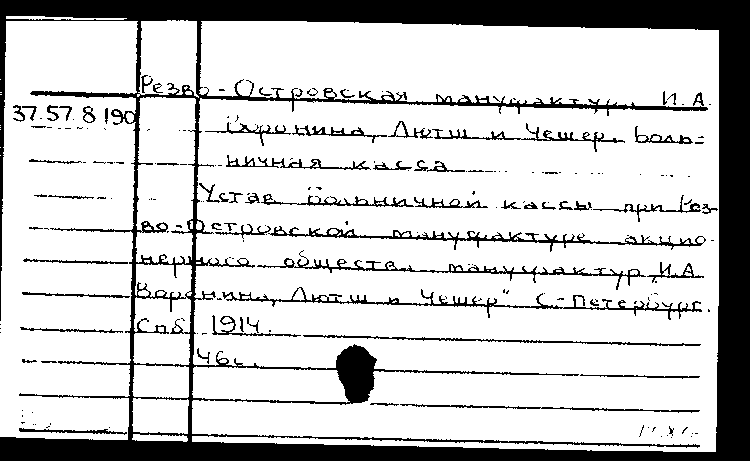 Резво-Островская мануфактур. И.А.
37.57.8.190
Воронина, Лютш и Чешер. Боль=
ничная касса
Устав больничной кассы при Рез-
во-Островской мануфактуре акцио-
нерного общества мануфактур „И.А.
Воронина, Лютш и Чешер" С.-Петербург.
Спб 1914.
46с.